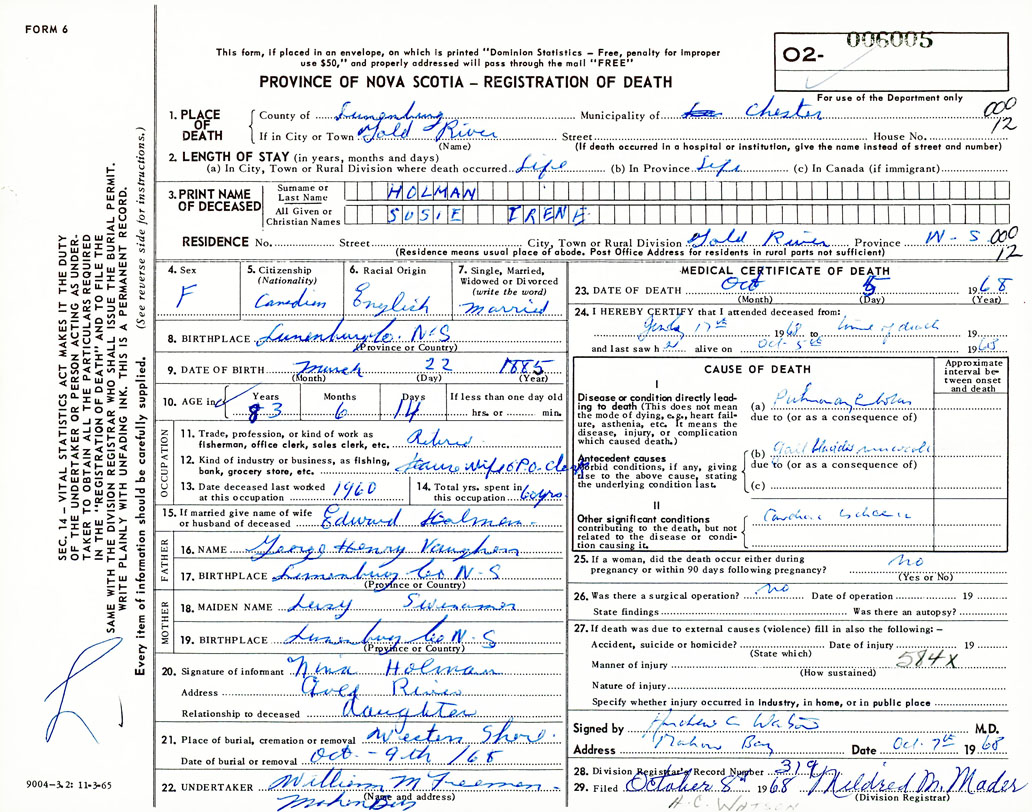 FORM 6
This form, if placed in an envelope, on which is printed "Dominion Statistics – Free, penalty for improper
use $50," and properly addressed will pass through the mail "FREE"
PROVINCE OF NOVA SCOTIA – REGISTRATION OF DEATH
O2- 006005
For use of the Department only
1. PLACE OF DEATH County of Lunenburg Municipality of Chester 000
If in City or Town Gold River Street House No. 12
(Name) (If death occurred in a hospital or institution, give the name instead of street and number)
2. LENGTH OF STAY (in years, months and days)
(a) In City, Town or Rural Division where death occurred Life (b) In Province Life (c) In Canada (if immigrant)
3. PRINT NAME OF DECEASED Surname or Last Name HOLMAN
All Given or Christian Names SUSIE IRENE
RESIDENCE No. Street City, Town or Rural Division Gold River Province N-S 000
(Residence means usual place of abode. Post Office Address for residents in rural parts not sufficient) 12
4. Sex
F
5. Citizenship
(Nationality)
Canadian
6. Racial Origin
English
7. Single, Married,
Widowed or Divorced
(write the word)
Married
8. BIRTHPLACE Lunenburg Co. N-S
(Province or Country)
9. DATE OF BIRTH March 22 1885
(Month) (Day) (Year)
10. AGE in Years Months Days If less than one day old
83 6 14 hrs. or min.
OCCUPATION
11. Trade, profession, or kind of work as
fisherman, office clerk, sales clerk, etc. Retired
12. Kind of industry or business, as fishing,
bank, grocery store, etc. House Wife & P.O. Clerk
13. Date deceased last worked
at this occupation 1960
14. Total yrs. spent in
this occupation 60 yrs
15. If married give name of wife
or husband of deceased Edward Holman
FATHER
16. NAME George Henry Vaughan
17. BIRTHPLACE Lunenburg Co N-S
(Province or Country)
MOTHER
18. MAIDEN NAME Swinamer
19. BIRTHPLACE Lunenburg Co N-S
(Province or Country)
20. Signature of informant Nina Holman
Address Gold River
Relationship to deceased daughter
21. Place of burial, cremation or removal Western Shore
Date of burial or removal Oct - 9th /68
22. UNDERTAKER William M Freeman
(Name and address)
Mahone Bay
MEDICAL CERTIFICATE OF DEATH
23. DATE OF DEATH Oct 5 1968
(Month) (Day) (Year)
24. I HEREBY CERTIFY that I attended deceased from:
17th 1968 to time of death 19
and last saw her alive on Oct. 5th 1968
CAUSE OF DEATH
Approximate interval between onset and death
I
Disease or condition directly leading to death (This does not
the mode of dying, e.g., heart failure, asthenia, etc. It means the
disease, injury, or complication
which caused death.)
(a) Pulmonary Embolus
due to (or as a consequence of)
Antecedent causes
Morbid conditions, if any, giving
rise to the above cause, stating
the underlying condition last.
(b) Gall bladder removal
due to (or as a consequence of)
(c)
II
Other significant conditions
contributing to the death, but not
related to the disease or condition causing it.
25. If a woman, did the death occur either during
pregnancy or within 90 days following pregnancy? No
(Yes or No)
26. Was there a surgical operation? No Date of operation 19
State findings Was there an autopsy?
27. If death was due to external causes (violence) fill in also the following: –
Accident, suicide or homicide? Date of injury 19
(State which)
Manner of injury 584X
(How sustained)
Nature of injury
Specify whether injury occurred in industry, in home, or in public place
Signed by Andrew C Watson M.D.
Address Mahone Bay Date Oct. 7th 1968
28. Division Registrar's Record Number 319
29. Filed October 8th 1968 Mildred M. Mader
(Division Registrar)
A.C. WATSON
SEC. 14 – VITAL STATISTICS ACT MAKES IT THE DUTY
OF THE UNDERTAKER OR PERSON ACTING AS UNDER-
TAKER TO OBTAIN ALL THE PARTICULARS REQUIRED
IN THE "REGISTRATION OF DEATH" AND TO FILE THE
SAME WITH THE DIVISION REGISTRAR WHO SHALL ISSUE THE BURIAL PERMIT.
WRITE PLAINLY WITH UNFADING INK. THIS IS A PERMANENT RECORD.
Every item of information should be carefully supplied. (See reverse side for instructions.)
9004-3.2: 11-3-65